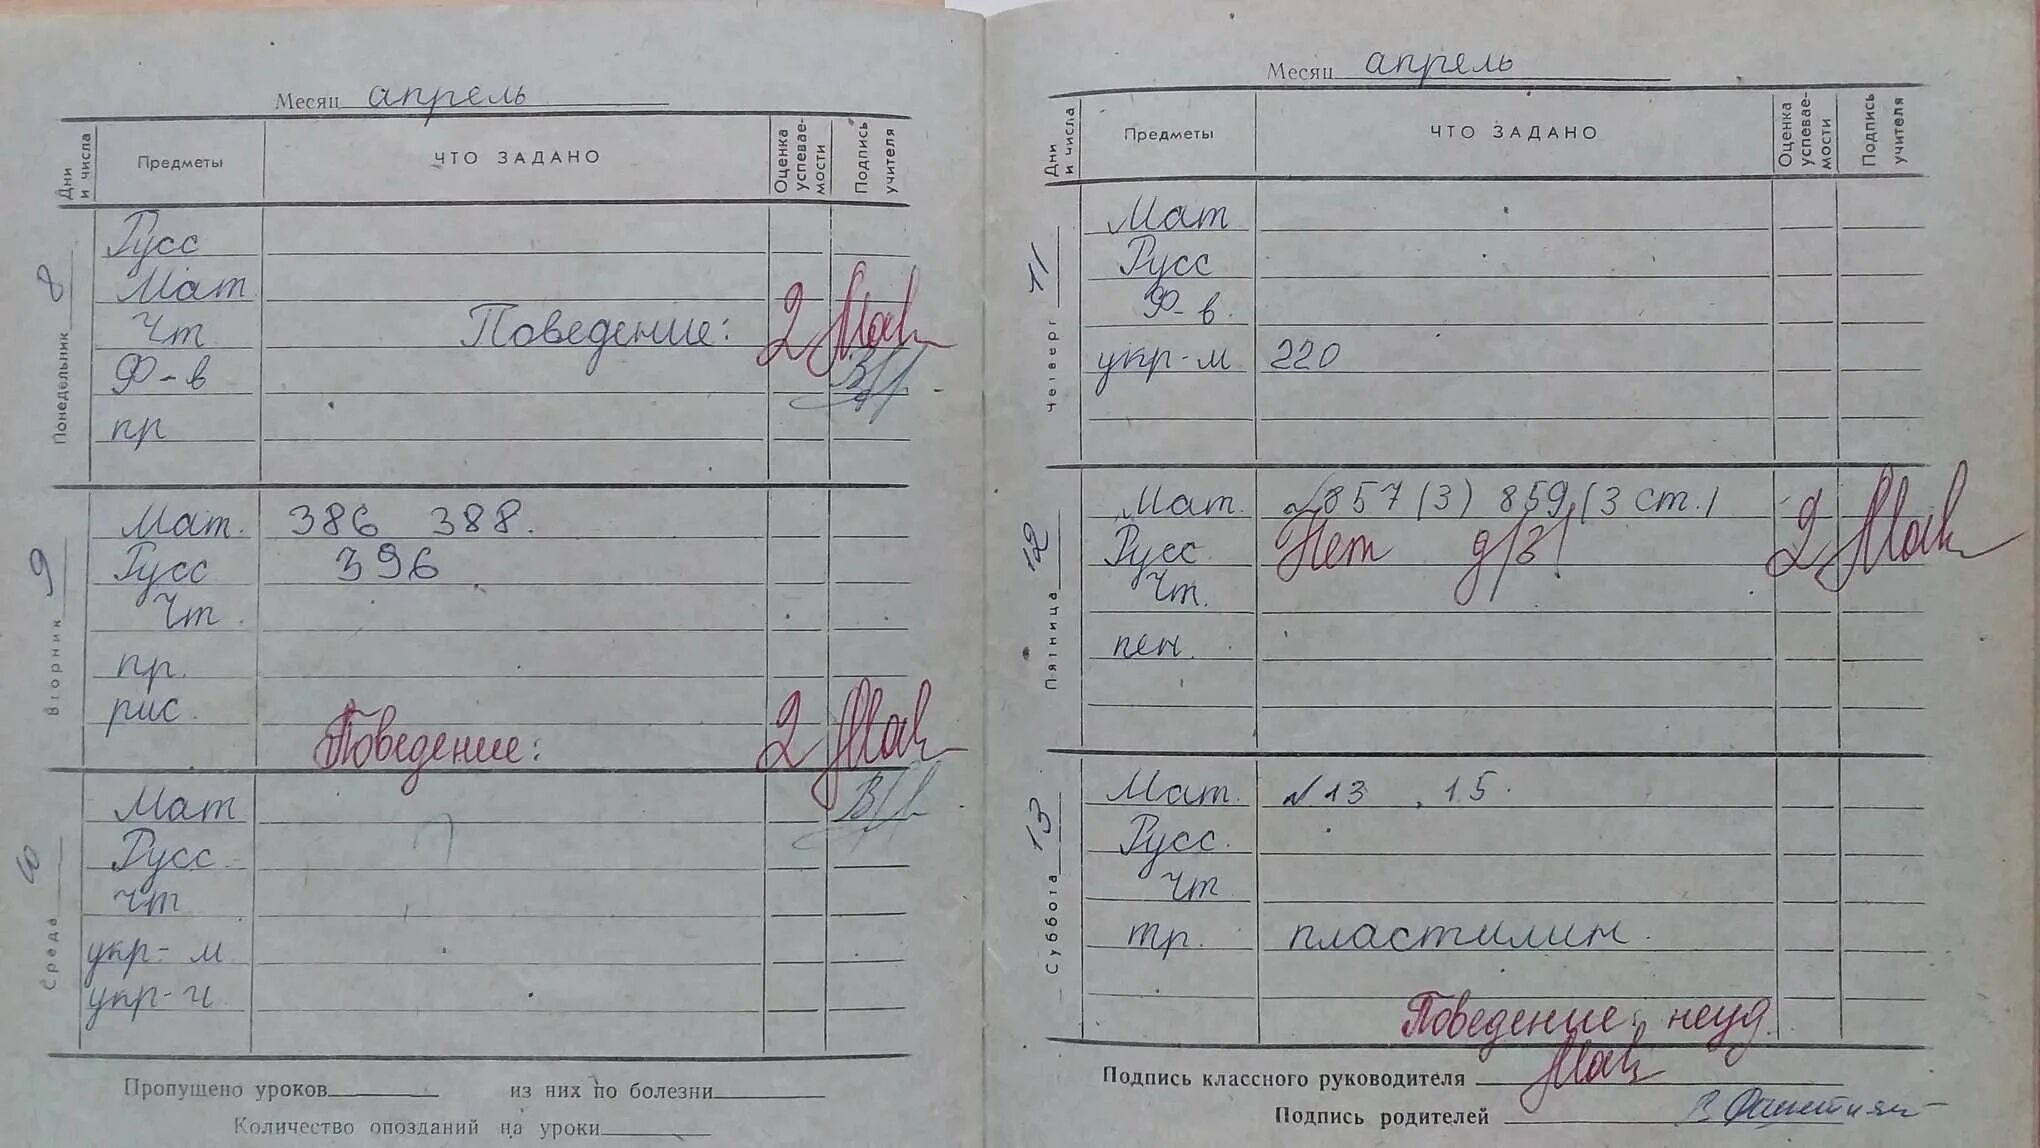 Месяц апрель
Дни и числа Предметы ЧТО ЗАДАНО Оценка успевае-мости Подпись учителя
Понедельник 8
Русс
Мат
Чт Поведение: 2 Мак
Ф-в
пр
Вторник 9
Мат. 386 388.
Русс 396
Чт.
пр.
рис.
Поведение: 2 Мак
Среда 10
Мат
Русс
Чт
укр-м
укр-ч
Пропущено уроков из них по болезни
Количество опозданий на уроки
Месяц апрель
Дни и числа Предметы ЧТО ЗАДАНО Оценка успевае-мости Подпись учителя
Четверг 11
Мат
Русс
Ф-в.
укр-м 220
Пятница 12
Мат. №857 (3) 859 (3 ст.)
Русс. Нет д/з! 2 Мак
Чт.
пен.
Суббота 13
Мат. №13, 15.
Русс.
Чт
тр. пластилин.
Поведение: неуд.
Подпись классного руководителя Мак
Подпись родителей